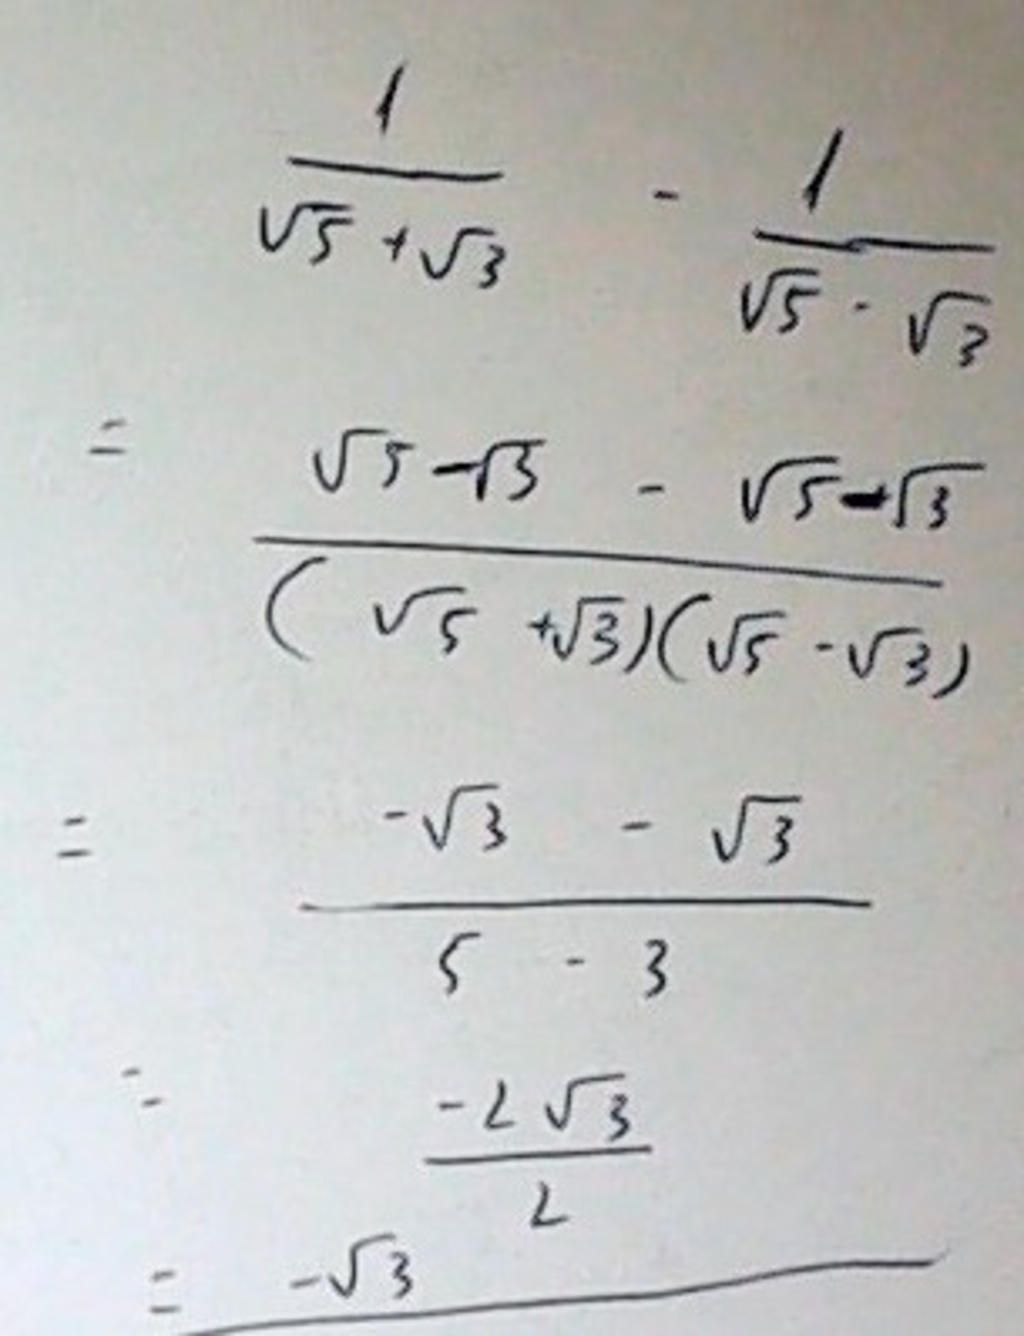 1/(√5 + √3) - 1/(√5 - √3)
= (√5 - √3 - √5 - √3)/((√5 + √3)(√5 - √3))
= (-√3 - √3)/(5 - 3)
= (-2√3)/2
= -√3